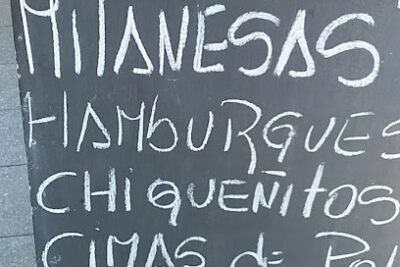 MILANESAS
HAMBURGUES
CHIQUEÑitos
CIMAS de Pol